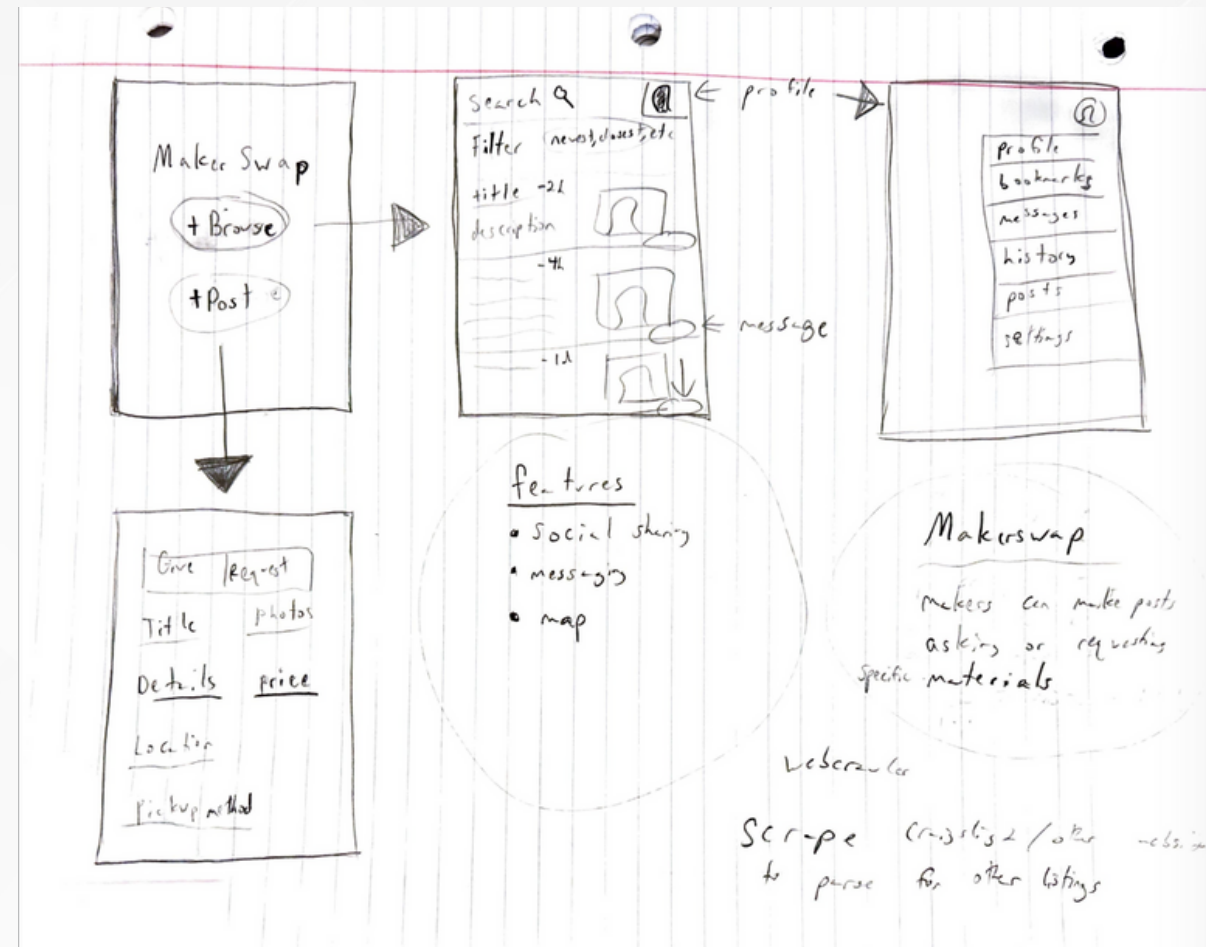 Maker Swap
+ Browse
+ Post
search
Filter (newest, closest, etc
title -2h
description
-4h
-1d
← profile
← message
profile
bookmarks
messages
history
posts
settings
Give | Request
Title photos
Details price
Location
Pickup method
features
• Social sharing
• messaging
• map
Makerswap
makers can make posts
asking or requesting
specific materials
webcrawler
Scrape craigslist / other
to parse for other listings